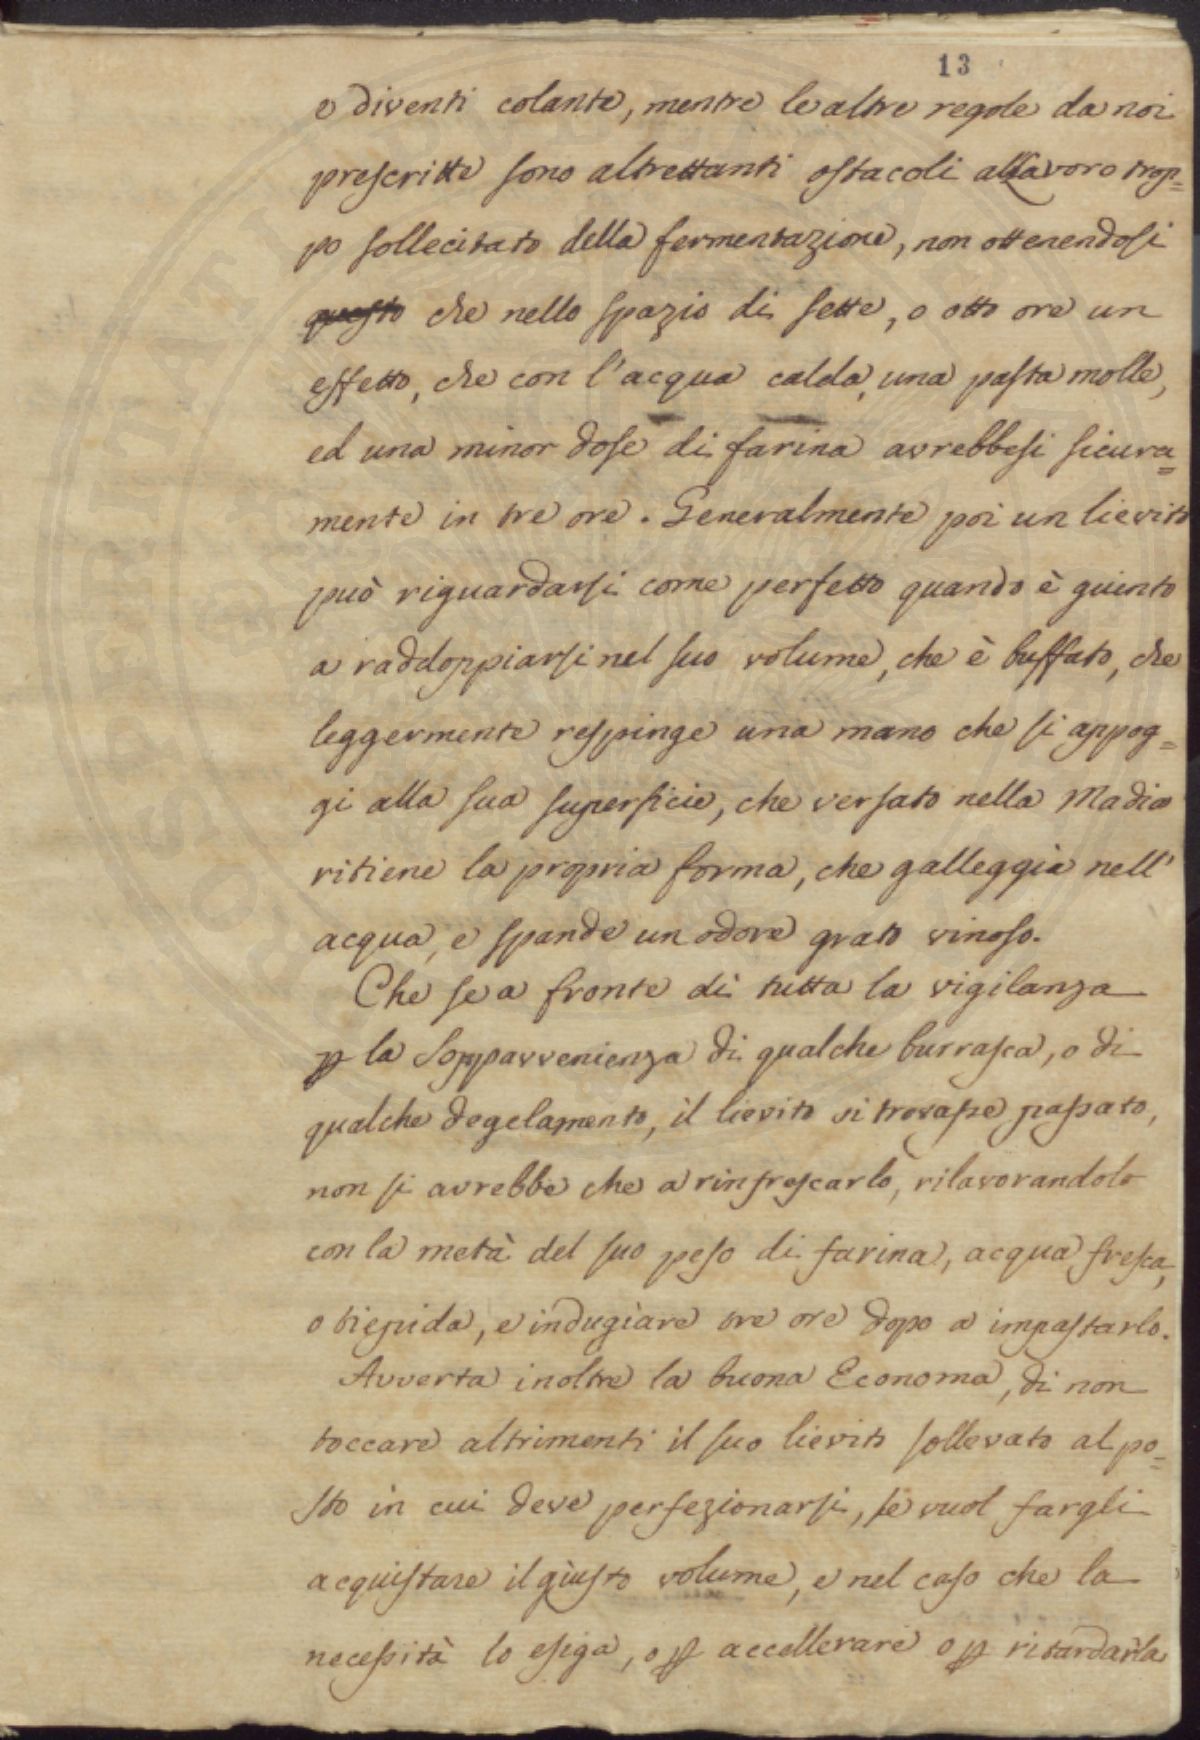 13
e diventi colante, mentre le altre regole da noi
prescritte sono altrettanti ostacoli al lavoro trop=
po sollecitato della fermentazione, non ottenendosi
questo che nello spazio di sette, o otto ore un
effetto, che con l'acqua calda, una pasta molle,
ed una minor dose di farina avrebbesi sicura=
mente in tre ore. Generalmente poi un lievito
può riguardarsi come perfetto quando è guinto
a raddoppiarsi nel suo volume, che è buffato, che
leggermente respinge una mano che si appog=
gi alla sua superficie, che versato nella Madia
ritiene la propria forma, che galleggia nell'
acqua, e spande un odore grato vinoso.
Che se a fronte di tutta la vigilanza
p la sopravvenienza di qualche burrasca, o di
qualche degelamento, il lievito si trovasse passato,
non si avrebbe che a rinfrescarlo, rilavorandolo
con la metà del suo peso di farina, acqua fresca,
o tiepida, e indugiare tre ore dopo a impastarlo.
Avverta inoltre la buona Economa, di non
toccare altrimenti il suo lievito sollevato al po=
sto in cui deve perfezionarsi, se vuol fargli
acquistare il giusto volume, e nel caso che la
necessità lo esiga, o p accellerare o p ritardarla